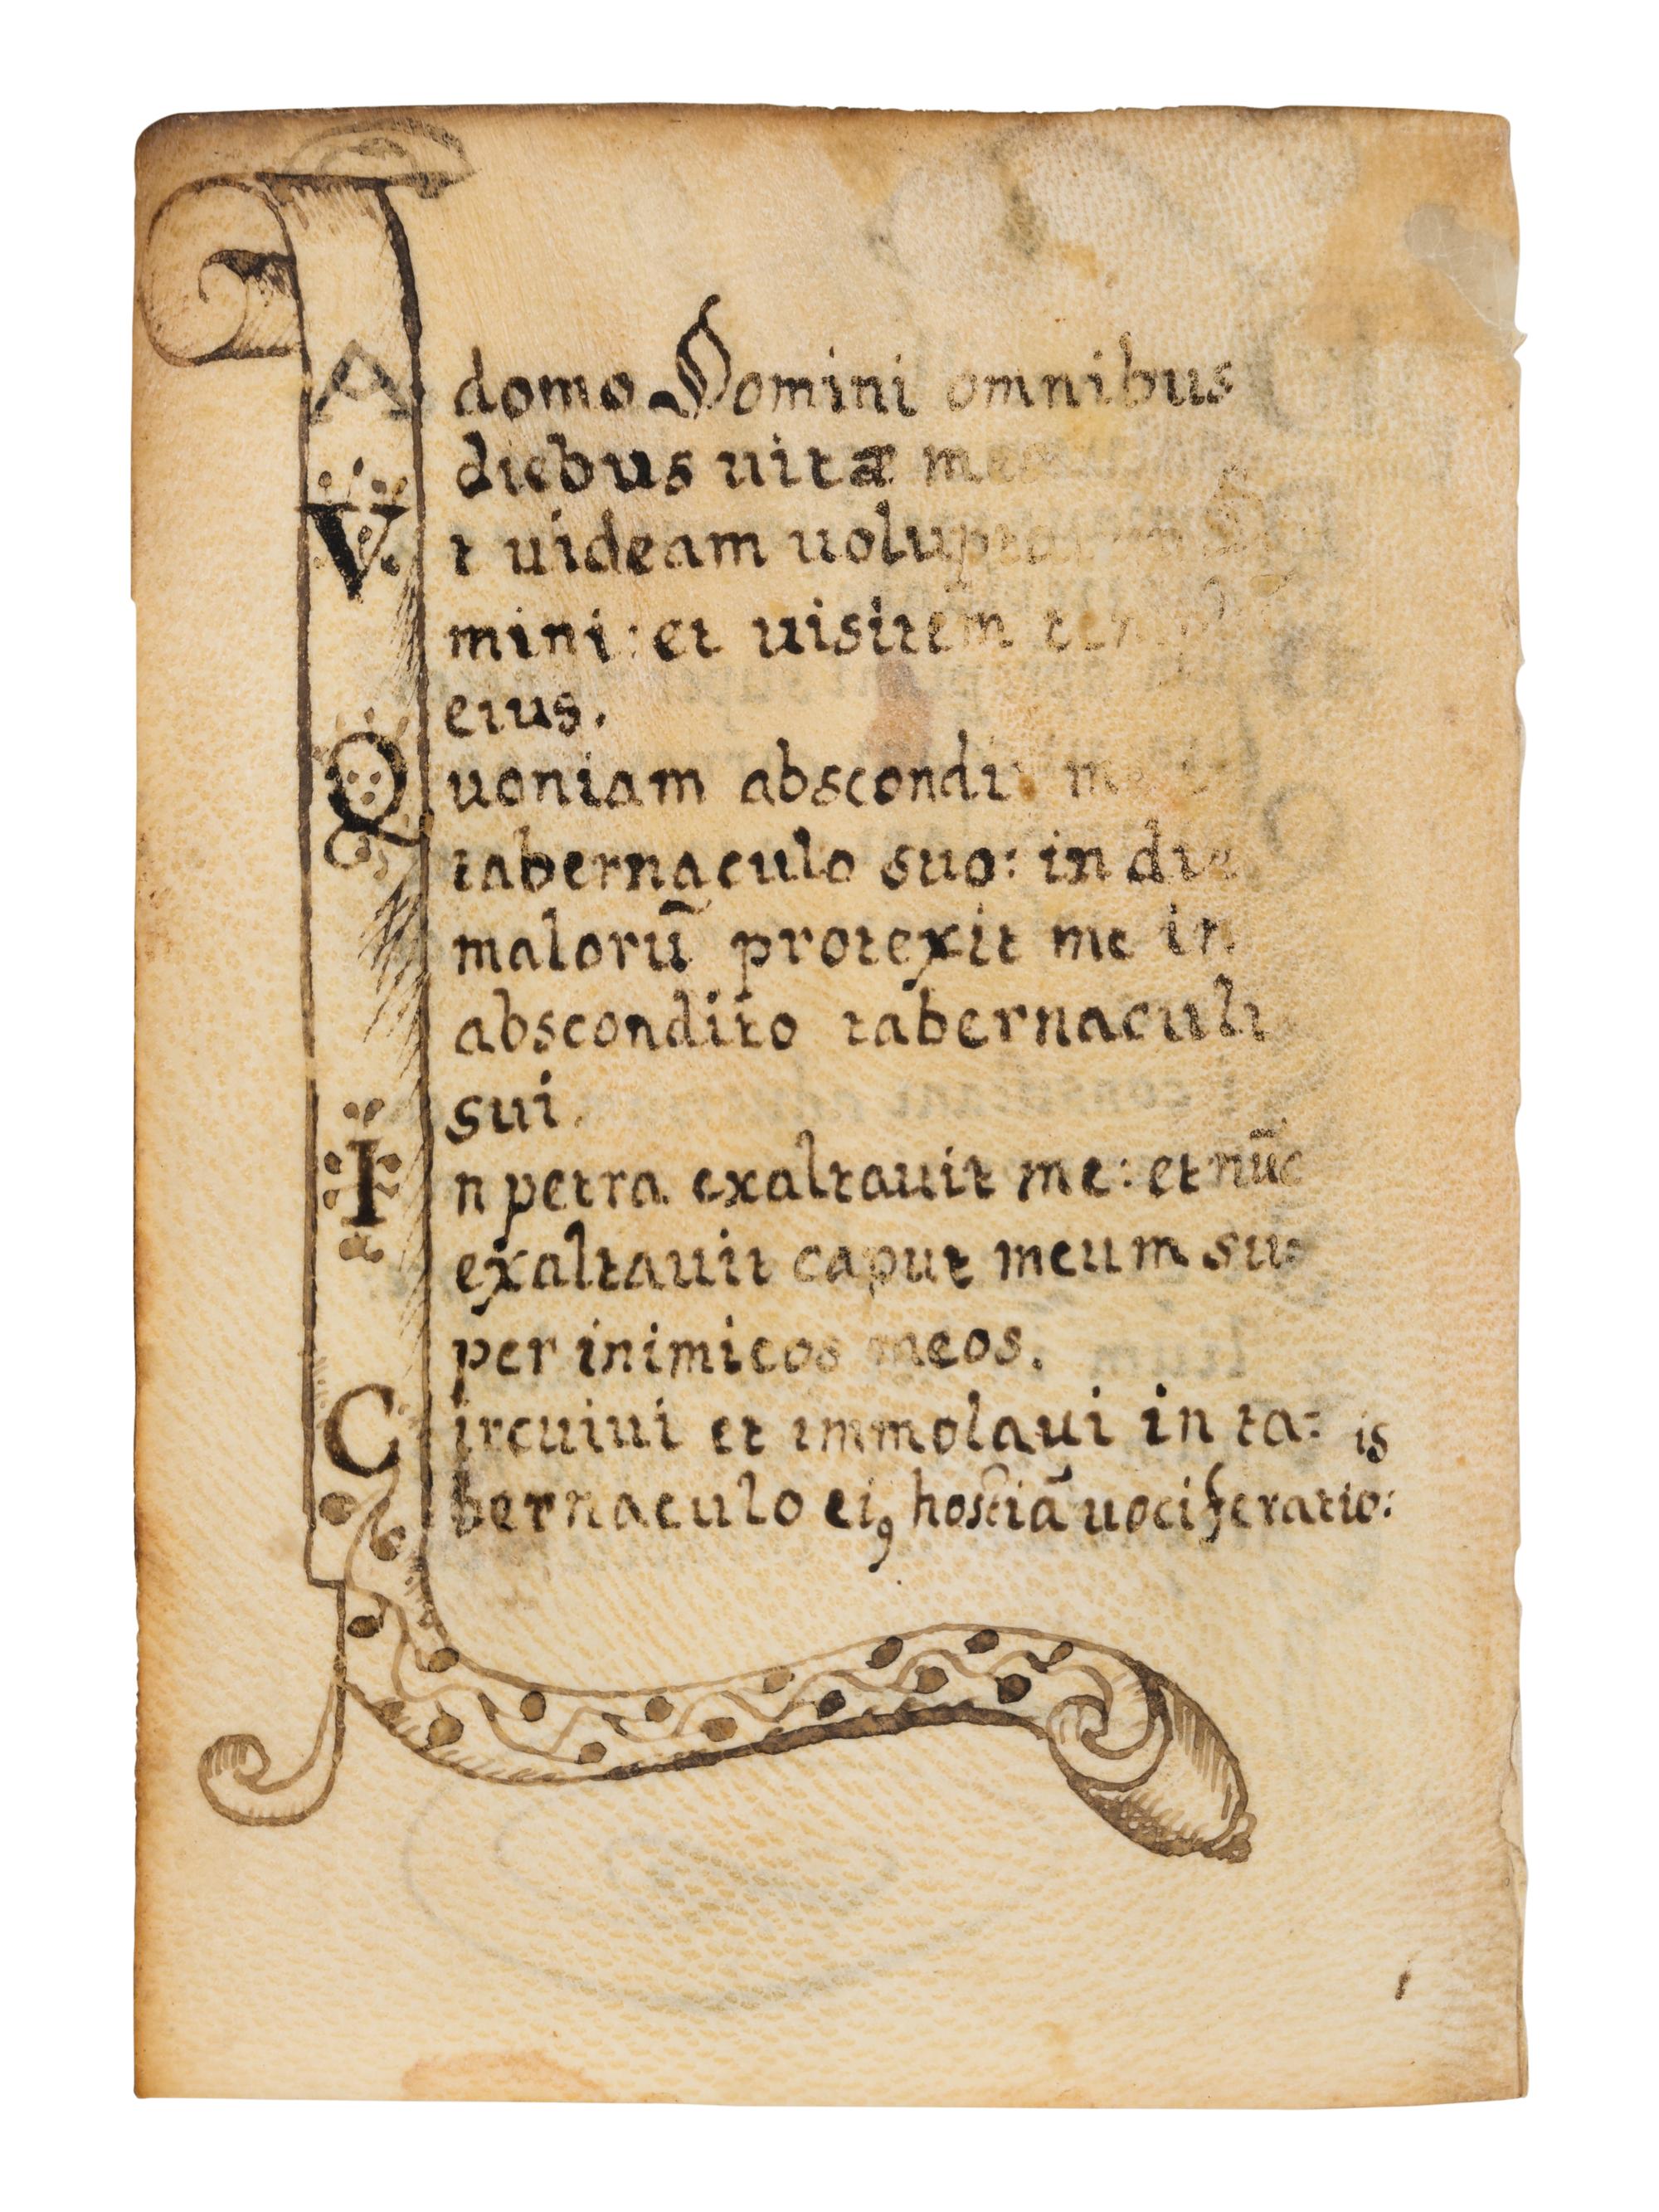 domo Domini omnibus
diebus uitæ
V t uideam
mini: et uisitem
eius.
Q uoniam abscondit
tabernaculo suo: in die
malorū protexit me in
abscondito tabernaculi
sui.
I n petra exaltauit me: et nūc
exaltauit caput meum su:
per inimicos meos.
C ircuiui et immolaui in ta: is
bernaculo eiꝯ hostiā uociferatio: